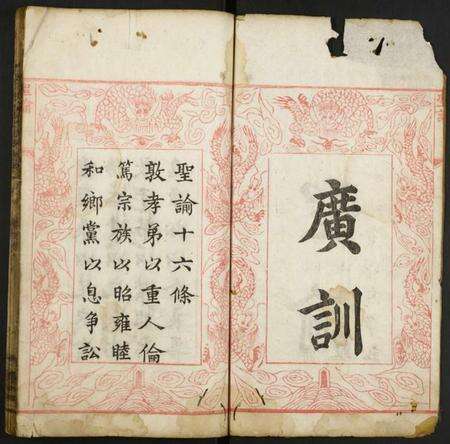 廣訓
聖諭十六條
敦孝弟以重人倫
篤宗族以昭雍睦
和鄉黨以息爭訟